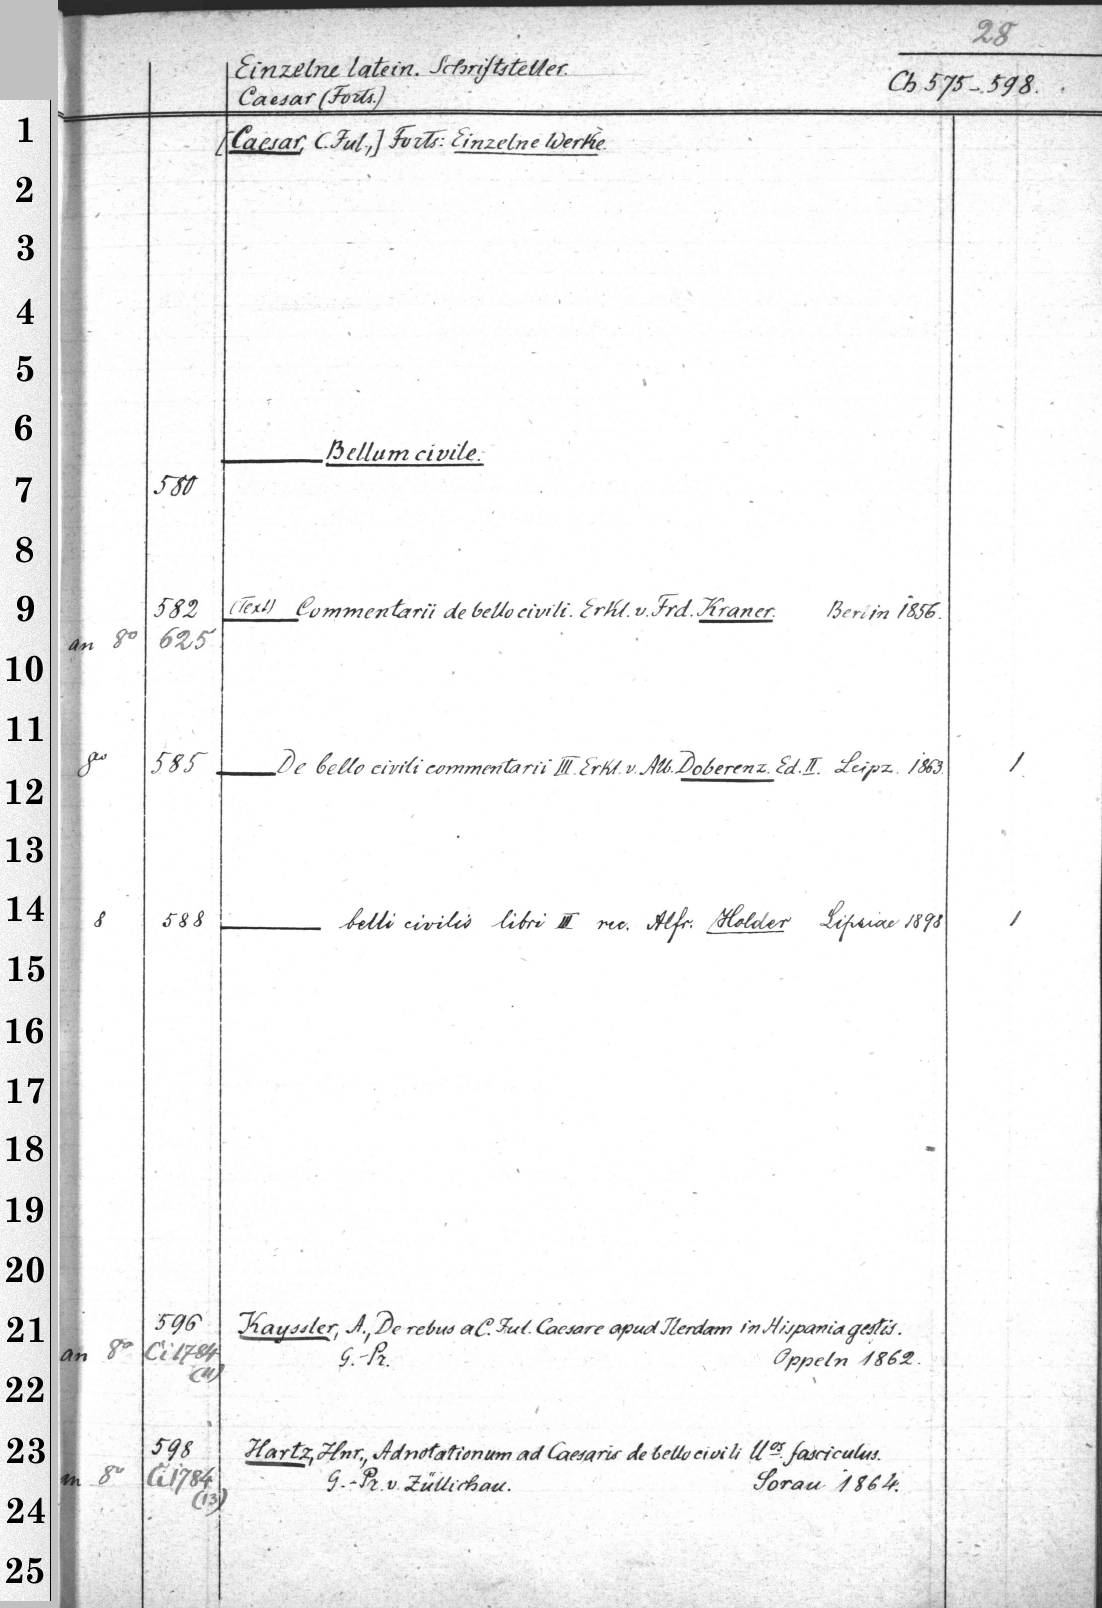 28
Einzelne latein. Schriftsteller.
Ch 575-598.
Caesar (Forts.)
1
[Caesar, C. Jul.,] Forts: Einzelne Werke.
2
3
4
5
6
Bellum civile.
7 580
8
9 582 (Text) Commentarii de bello civili. Erkl. v. Frd. Kraner. Berlin 1856.
an 8° 625
10
11
8° 585 De bello civili commentarii III. Erkl. v. Alb. Doberenz. Ed. II. Leipz. 1863 1
12
13
14 8 588 belli civilis libri III rec. Alfr. Holder Lipsiae 1898 1
15
16
17
18
19
20
21 596 Kayssler, A., De rebus a C. Jul. Caesare apud Ilerdam in Hispania gestis.
an 8° Ci 1784 G.-Pr. Oppeln 1862.
(11)
22
23 598 Hartz, Hnr., Adnotationum ad Caesaris de bello civili fasciculus.
8° Ci 1784 G.-Pr. v. Züllichau. Sorau 1864.
(13)
24
25